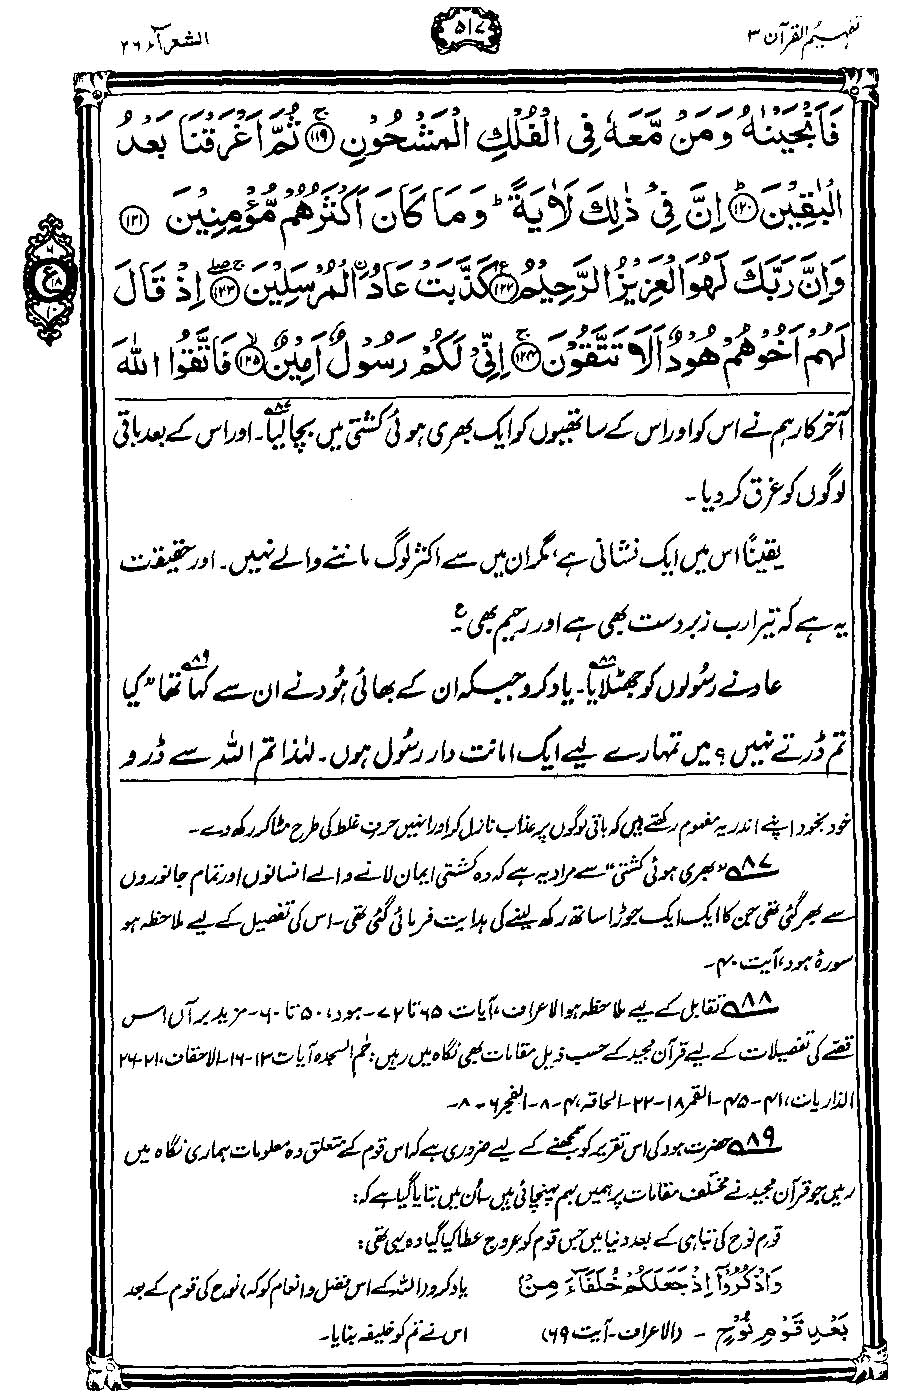 تفہیم القرآن ۳
۵۱۷
الشعرآء ۲۶
فَاَنْجَيْنٰهُ وَمَنْ مَّعَهٗ فِى الْفُلْكِ الْمَشْحُوْنِ ﴿۱۱۹﴾ ثُمَّ اَغْرَقْنَا بَعْدُ
الْبٰقِيْنَ ﴿۱۲۰﴾ اِنَّ فِىْ ذٰلِكَ لَاٰيَةً ؕ وَمَا كَانَ اَكْثَرُهُمْ مُّؤْمِنِيْنَ ﴿۱۲۱﴾
وَاِنَّ رَبَّكَ لَهُوَ الْعَزِيْزُ الرَّحِيْمُ ﴿۱۲۲﴾ كَذَّبَتْ عَادُ ۨ الْمُرْسَلِيْنَ ﴿۱۲۳﴾ اِذْ قَالَ
لَهُمْ اَخُوْهُمْ هُوْدٌ اَلَا تَتَّقُوْنَ ﴿۱۲۴﴾ اِنِّىْ لَكُمْ رَسُوْلٌ اَمِيْنٌ ﴿۱۲۵﴾ فَاتَّقُوا اللّٰهَ
آخرکار ہم نے اس کو اور اس کے ساتھیوں کو ایک بھری ہوئی کشتی میں بچا لیا۔ ۸۷ اور اس کے بعد باقی
لوگوں کو غرق کر دیا۔
یقیناً اس میں ایک نشانی ہے، مگر ان میں سے اکثر لوگ ماننے والے نہیں۔ اور حقیقت
یہ ہے کہ تیرا رب زبردست بھی ہے اور رحیم بھی۔ ع
عاد نے رسُولوں کو جھٹلایا۔ ۸۸ یاد کرو جبکہ ان کے بھائی ہُود نے ان سے کہا تھا ۸۹ "کیا
تم ڈرتے نہیں؟ میں تمہارے لیے ایک امانت دار رسُول ہوں۔ لہٰذا تم اللہ سے ڈرو
خود بخود اپنے اندر یہ مفہوم رکھتے ہیں کہ باقی لوگوں پر عذاب نازل کر اور انہیں حرفِ غلط کی طرح مٹا کر رکھ دے۔
۸۷ "بھری ہوئی کشتی" سے مراد یہ ہے کہ وہ کشتی ایمان لانے والے انسانوں اور تمام جانوروں
سے بھر گئی تھی جن کا ایک ایک جوڑا ساتھ رکھ لینے کی ہدایت فرمائی گئی تھی۔ اس کی تفصیل کے لیے ملاحظہ ہو
سورۂ ہود، آیت ۴۰۔
۸۸ تقابل کے لیے ملاحظہ ہو الاعراف، آیات ۶۵ تا ۷۲۔ ہود، ۵۰ تا ۶۰۔ مزید برآں اس
قصّے کی تفصیلات کے لیے قرآن مجید کے حسب ذیل مقامات بھی نگاہ میں رہیں: حٰم السجدہ آیات ۱۳-۱۶۔ الاحقاف، ۲۱-۲۶
الذاریات، ۴۱-۴۵۔ القمر ۱۸-۲۲۔ الحاقہ، ۴-۸۔ الفجر ۶-۸۔
۸۹ حضرت ہود کی اس تقریر کو سمجھنے کے لیے ضروری ہے کہ اس قوم کے متعلق وہ معلومات ہماری نگاہ میں
رہیں جو قرآن مجید نے مختلف مقامات پر ہمیں بہم پہنچائی ہیں۔ اُن میں بتایا گیا ہے کہ:
قوم نوح کی تباہی کے بعد دنیا میں جس قوم کو عروج عطا کیا گیا وہ یہی تھی:
وَاذْكُرُوْٓا اِذْ جَعَلَكُمْ خُلَفَآءَ مِنْۢ یاد کرو (اللہ کے اس فضل و انعام کو کہ) نوح کی قوم کے بعد
بَعْدِ قَوْمِ نُوْحٍ ۔ (الاعراف۔ آیت ۶۹) اس نے تم کو خلیفہ بنایا۔